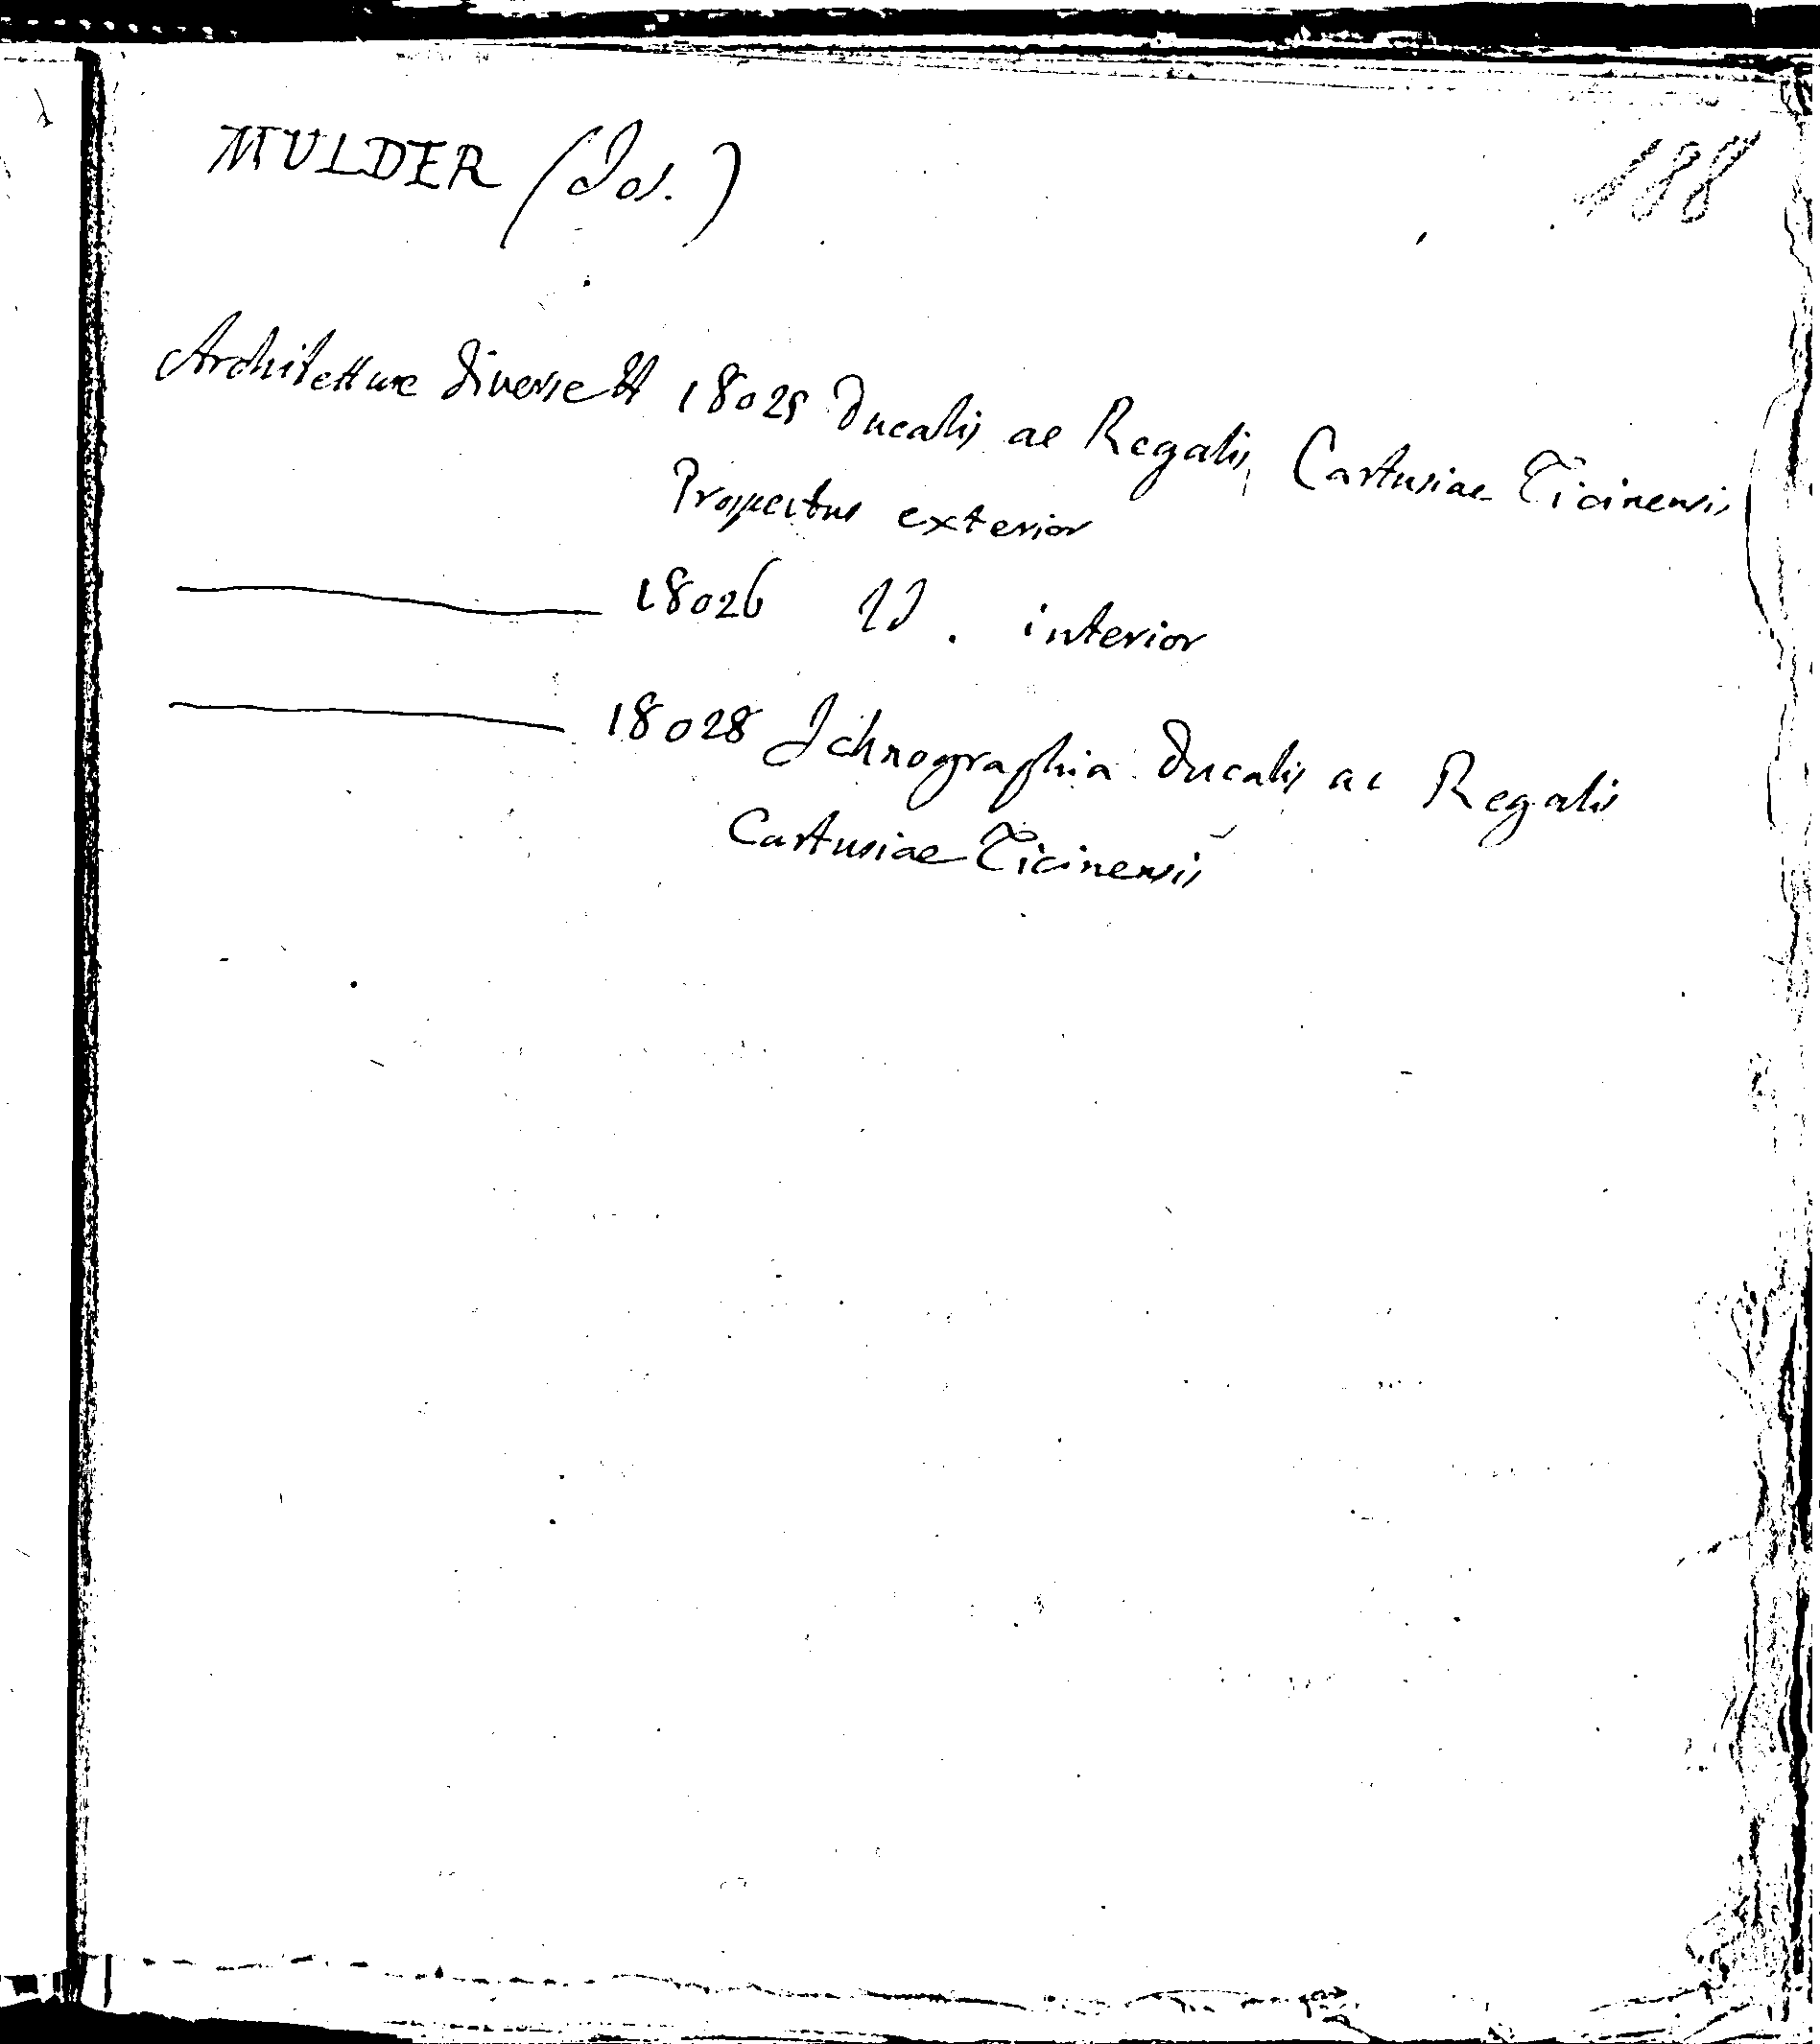 188
MULDER (Jos.)
Architetture diverse tt 18025 Ducalis ac Regalis Cartusiae Ticinensis
Prospectus exterior
18026 Id. interior
18028 Ichnographia Ducalis ac Regalis
Cartusiae Ticinensis